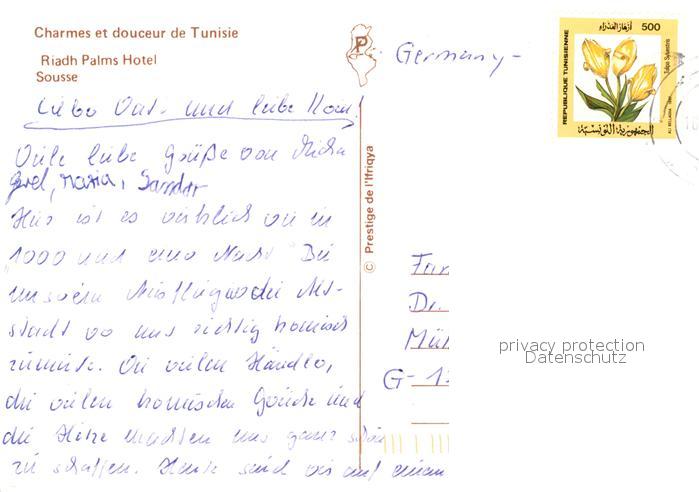 Charmes et douceur de Tunisie
Riadh Palms Hotel
Sousse
P
Germany -
REPUBLIQUE TUNISIENNE
أزهار الخضراء 500
Tulipa Sylvestris
الجمهورية التونسية
Liebe und liebe
Viele liebe Grüße von
Maria, Sandor
Hier ist es wirklich wie in
"1000 und eine Nacht" Bei
unseren in die Alt-
stadt wo uns richtig komisch
zumute. Die vielen Händler,
die vielen komischen Gerüche und
die Hitze machten uns ganz schön
zu schaffen. Heute sind wir auf einem
© Prestige de l'Ifriqya
Fam
Dr.
Mül
G- 1
privacy protection
Datenschutz